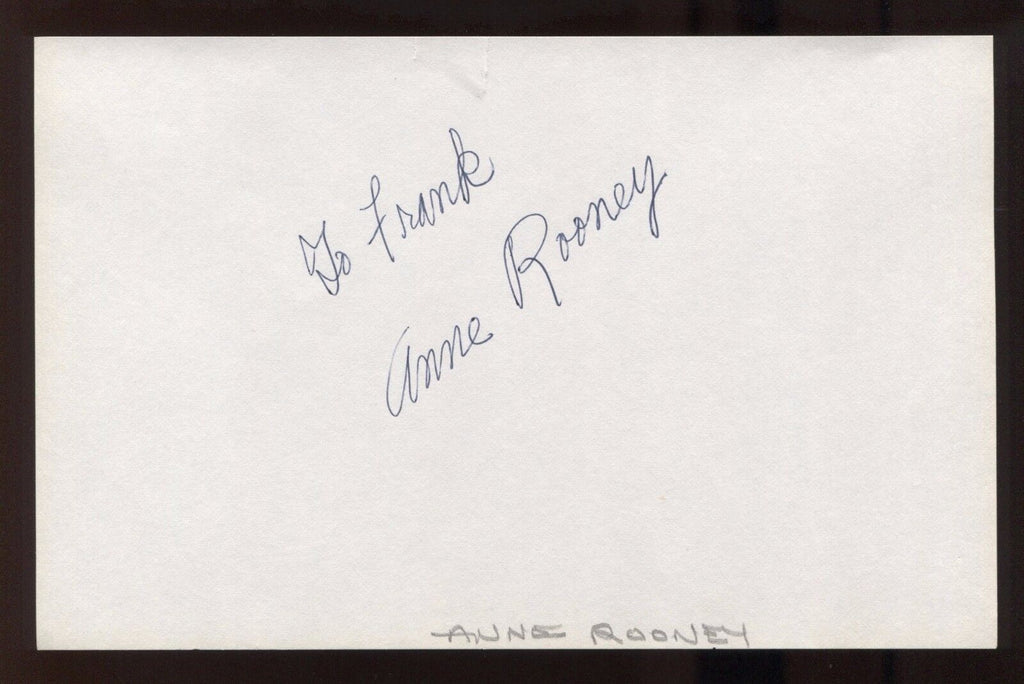 To Frank
Anne Rooney
ANNE ROONEY